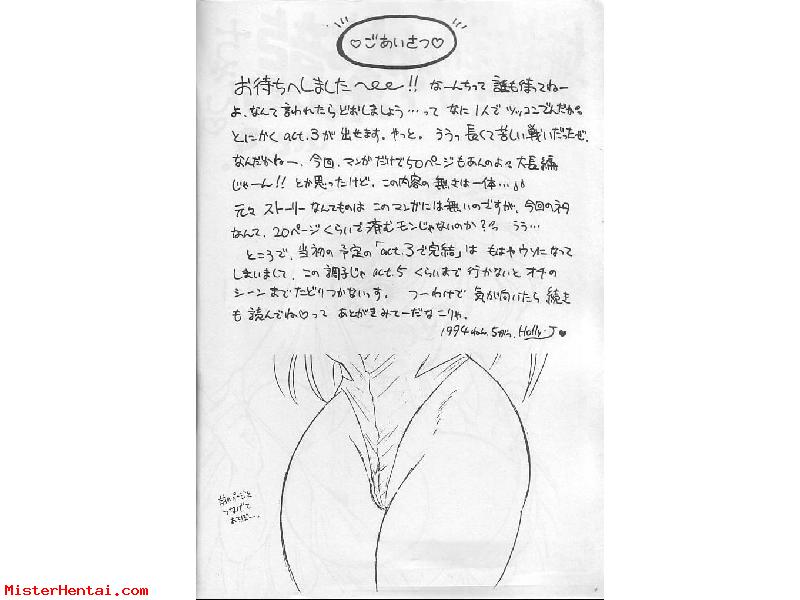 ♡ごあいさつ♡
お待たへしましたへee!! なーんちって 誰も待ってねー
よ、なんて言われたらどおしましょう…って なに1人でツッコンでんだか。
とにかく act.3が 出せます。やっと。 ううっ 長くて苦しい戦いだったぜ。
なんだかねー、今回、マンガだけで50ページもあんのよォ 大長編
じゃーん!! とか思ったけど、この内容の無さは一体…
元々 ストーリーなんてものは このマンガには無いのですが、今回のネタ
なんて、20ページくらいで済むモンじゃないのか?? うう…
ところで、当初の予定の「act.3で完結」は もはやウソになって
しまいまして、この調子じゃ act.5 くらいまで 行かないと オチの
シーンまでたどりつかないっす。 つーわけで 気が向いたら 続き
も 読んでね♡って あとがきみてーだな こりゃ。
1994ねん.5がつ. Holly-J♥
前のページと
つなげて
あそぼー、
MisterHentai.com